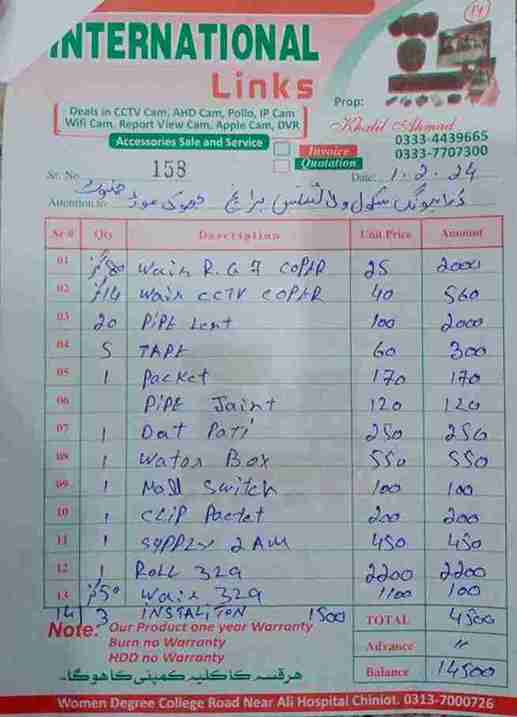 14
INTERNATIONAL
Links
Deals in CCTV Cam, AHD Cam, Pollo, IP Cam
Wifi Cam, Report View Cam, Apple Cam, DVR
Accessories Sale and Service
Prop:
Khalil Ahmad
0333-4439665
0333-7707300
Invoice
Quotation
Sr. No. 158 Date: 1.2.24
Attention to
Sr # Qty Description Unit Price Amount
01 80 Wair R.G 7 COPER 25 2000
02 14 Wair CCTV COPER 40 560
03 20 PiPE Lent 100 2000
04 5 TAPE 60 300
05 1 Packet 170 170
06 PiPE Jaint 120 120
07 1 Dat Pati 250 250
08 1 Water Box 550 550
09 1 Switch 100 100
10 1 CLIP Packet 200 200
11 1 2 AM 450 450
12 1 ROLL 329 2200 2200
13 50 Wair 329 1100 100
14 3 INSTALITON 1500 TOTAL 4500
Note: Our Product one year Warranty
Burn no Warranty
HDD no Warranty
Advance "
Balance 14500
ہر قسم کا کلیم کمپنی کا ہوگا۔
Women Degree College Road Near Ali Hospital Chiniot. 0313-7000726